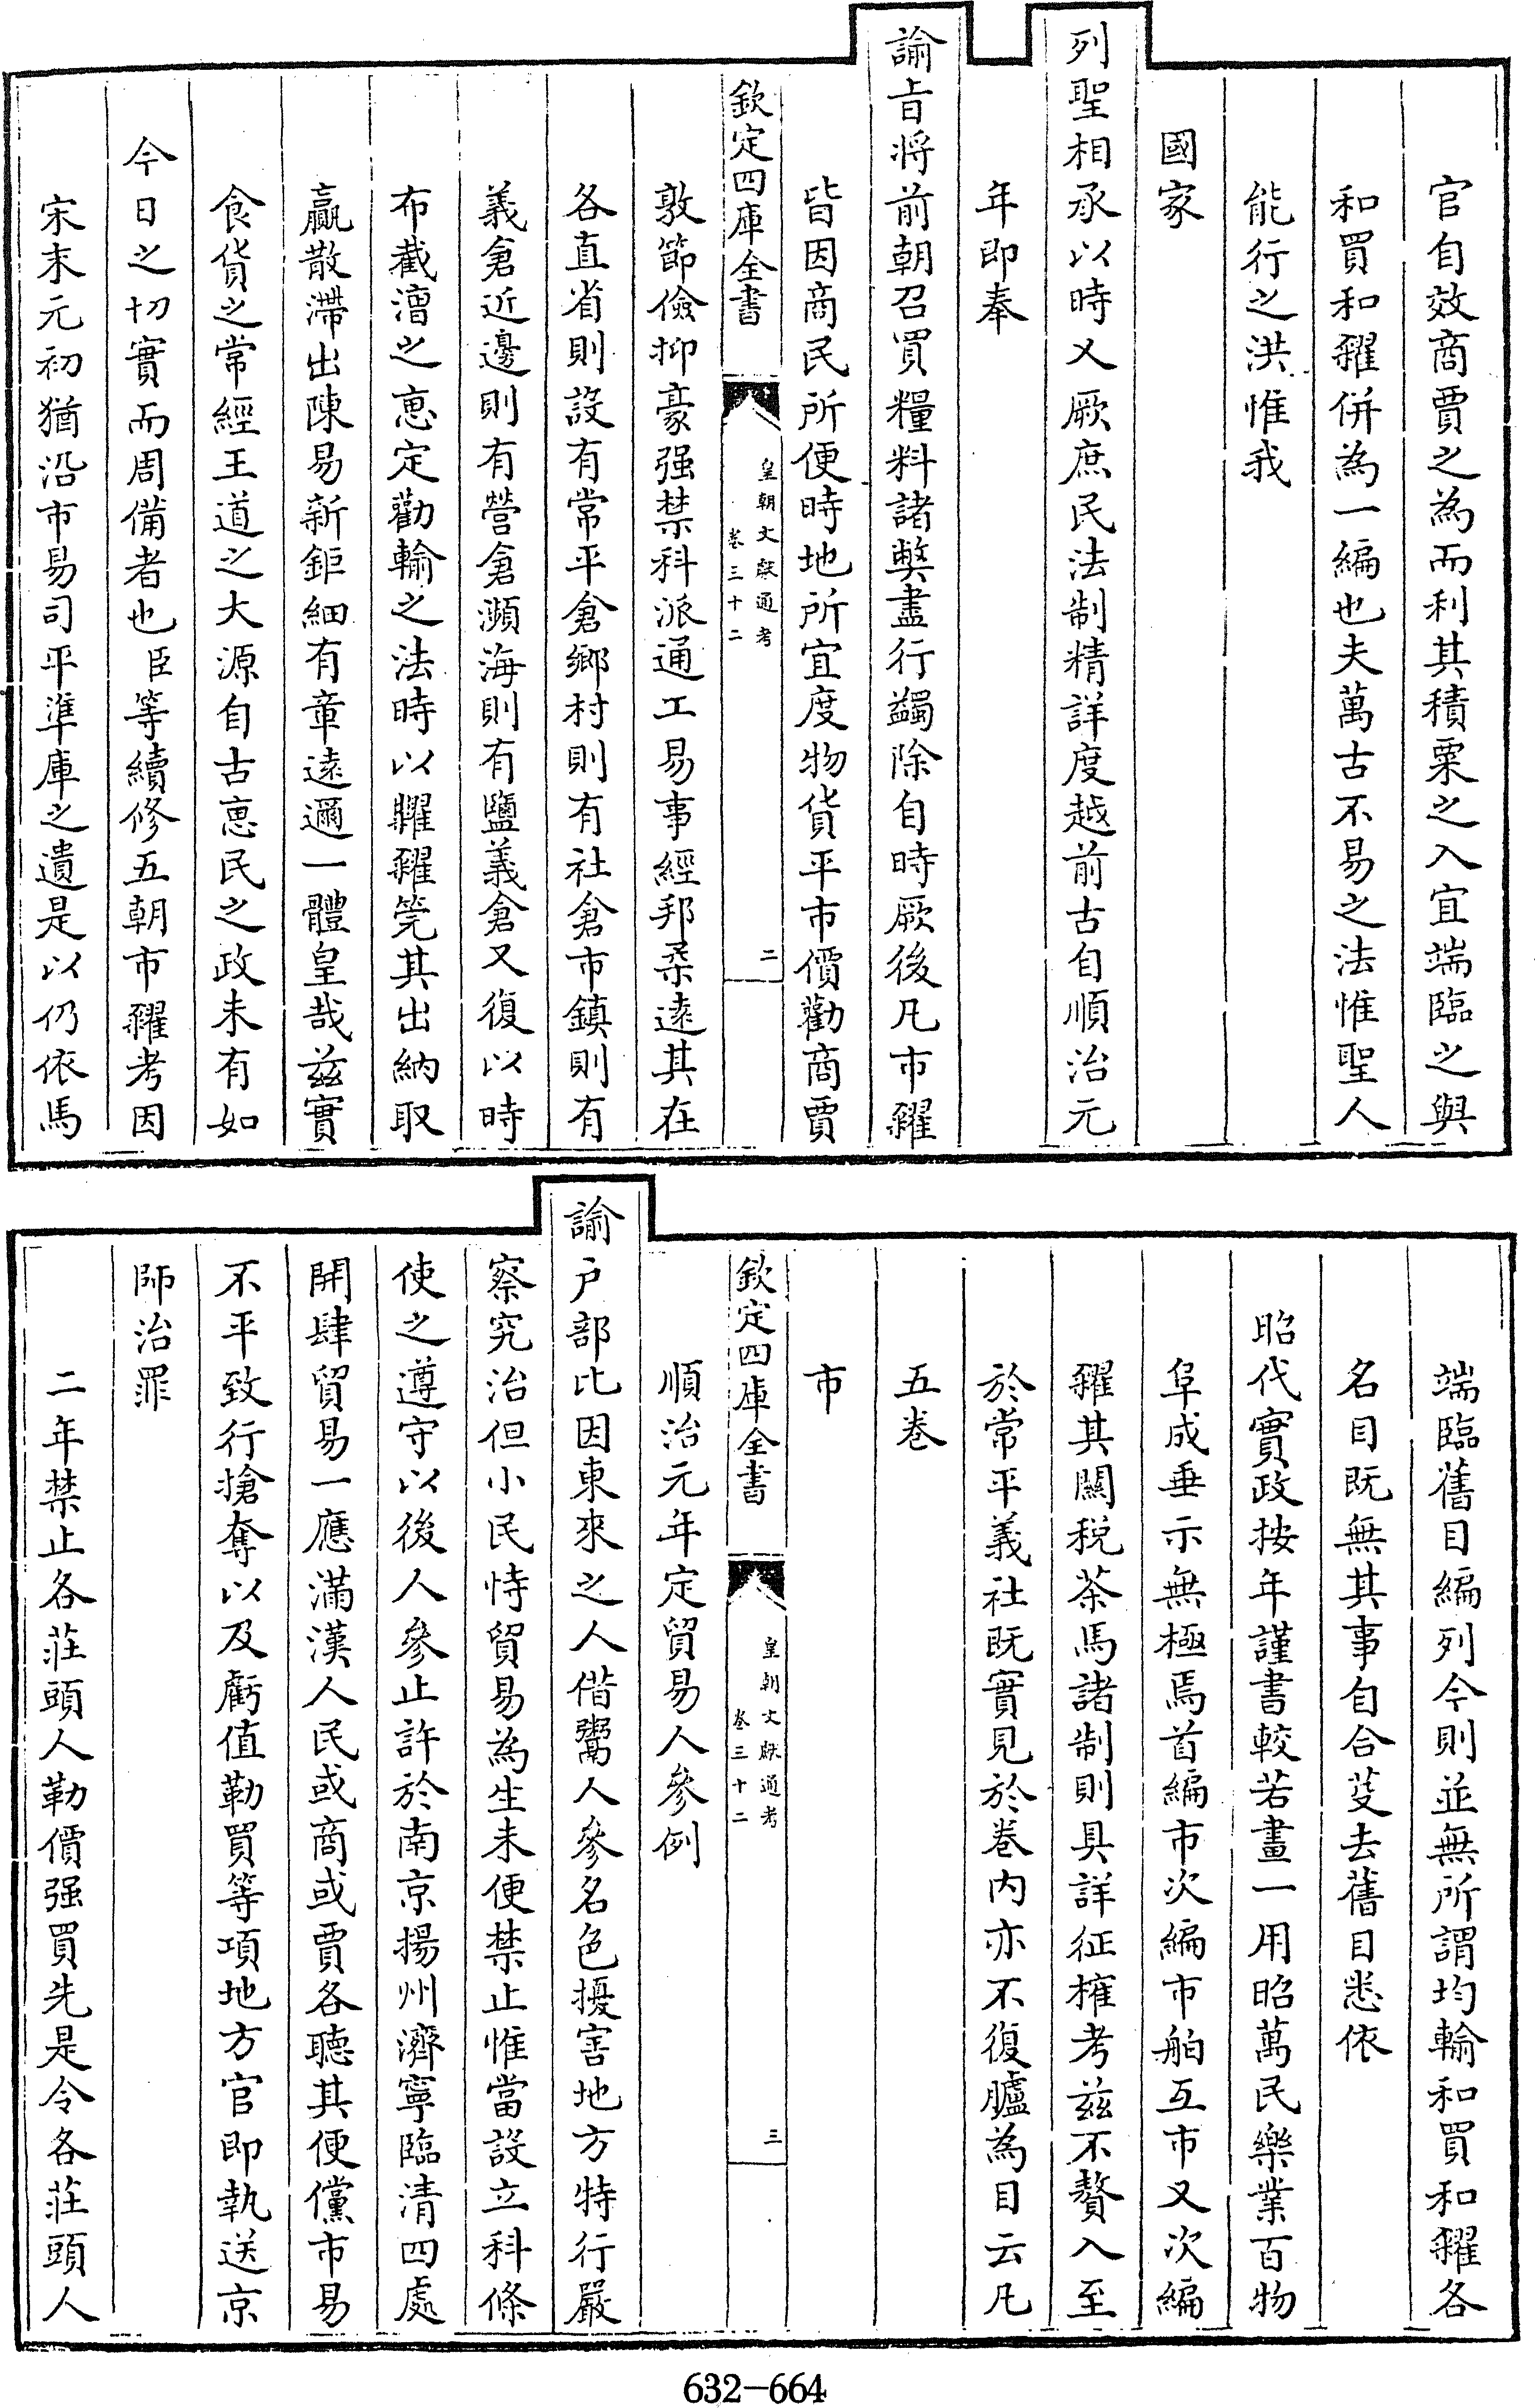 官自效商賈之為而利其積粟之入宜端臨之與
和買和糴併為一編也夫萬古不易之法惟聖人
能行之洪惟我
國家
列聖相承以時乂厥庶民法制精詳度越前古自順治元
年即奉
諭旨將前朝召買糧料諸弊盡行蠲除自時厥後凡市糴
皆因商民所便時地所宜度物貨平市價勸商賈
欽定四庫全書
皇朝文獻通考
卷三十二
二
敦節儉抑豪强禁科派通工易事經邦柔遠其在
各直省則設有常平倉鄉村則有社倉市鎮則有
義倉近邊則有營倉瀕海則有鹽義倉又復以時
布截漕之惠定勸輸之法時以糶糴筦其出納取
贏散滯出陳易新鉅細有章遠邇一體皇哉兹實
食貨之常經王道之大源自古惠民之政未有如
今日之切實而周備者也臣等續修五朝市糴考因
宋末元初猶沿市易司平準庫之遺是以仍依馬
端臨舊目編列今則並無所謂均輸和買和糴各
名目既無其事自合芟去舊目悉依
昭代實政按年謹書較若畫一用昭萬民樂業百物
阜成垂示無極焉首編市次編市舶互市又次編
糴其關稅茶馬諸制則具詳征榷考兹不贅入至
於常平義社既實見於卷内亦不復臚為目云凡
五卷
市
欽定四庫全書
皇朝文獻通考
卷三十二
三
順治元年定貿易人參例
諭户部比因東來之人借鬻人參名色擾害地方特行嚴
察究治但小民恃貿易為生未便禁止惟當設立科條
使之遵守以後人參止許於南京揚州濟寧臨清四處
開肆貿易一應滿漢人民或商或賈各聽其便儻市易
不平致行搶奪以及虧值勒買等項地方官即執送京
師治罪
二年禁止各莊頭人勒價强買先是令各莊頭人
632-664